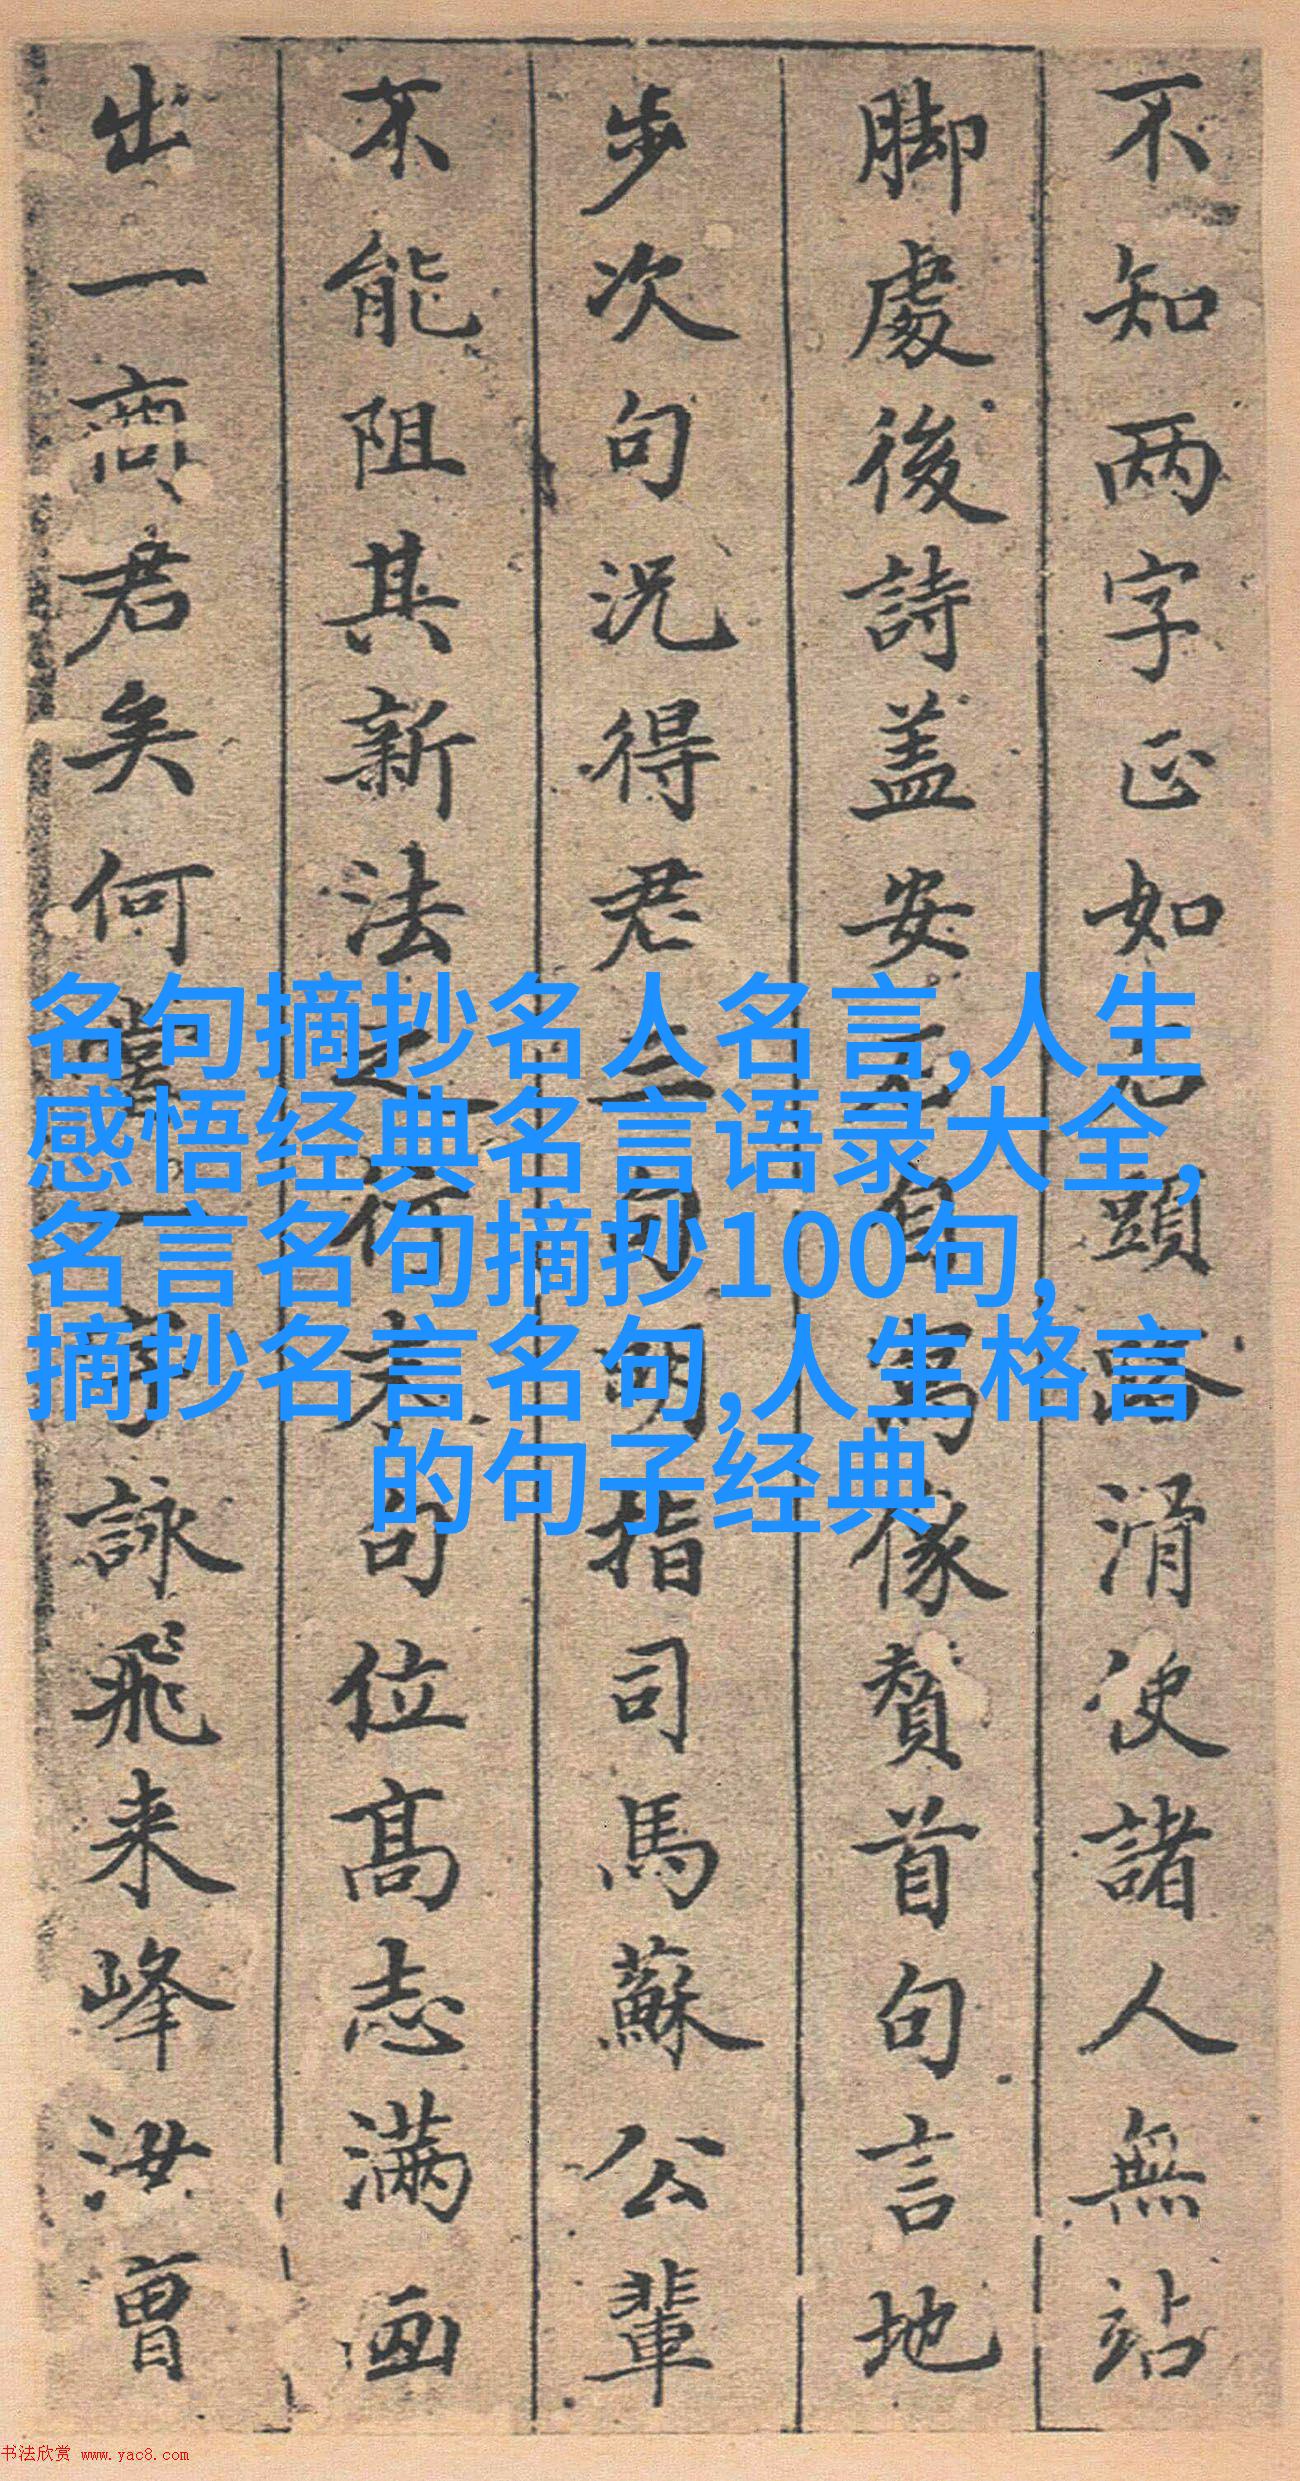 不知两字正如頭滑使諸人無站
脚處後詩盖安自寫像贊首句言地
步次句况得君三句明指司馬蘇公輩
不能阻其新法之行末句位高志满画
出一商君矣何字詠飛来峰汝曾
名句摘抄名人名言,人生
感悟经典名言语录大全,
名言名句摘抄100句,
摘抄名言名句,人生格言
的句子经典
书法欣赏 www.yac8.com